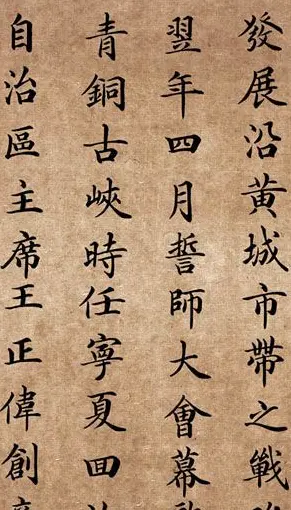 發展沿黄城市帶之戰
翌年四月誓師大會幕
青銅古峽時任寧夏回
自治區主席王正偉創